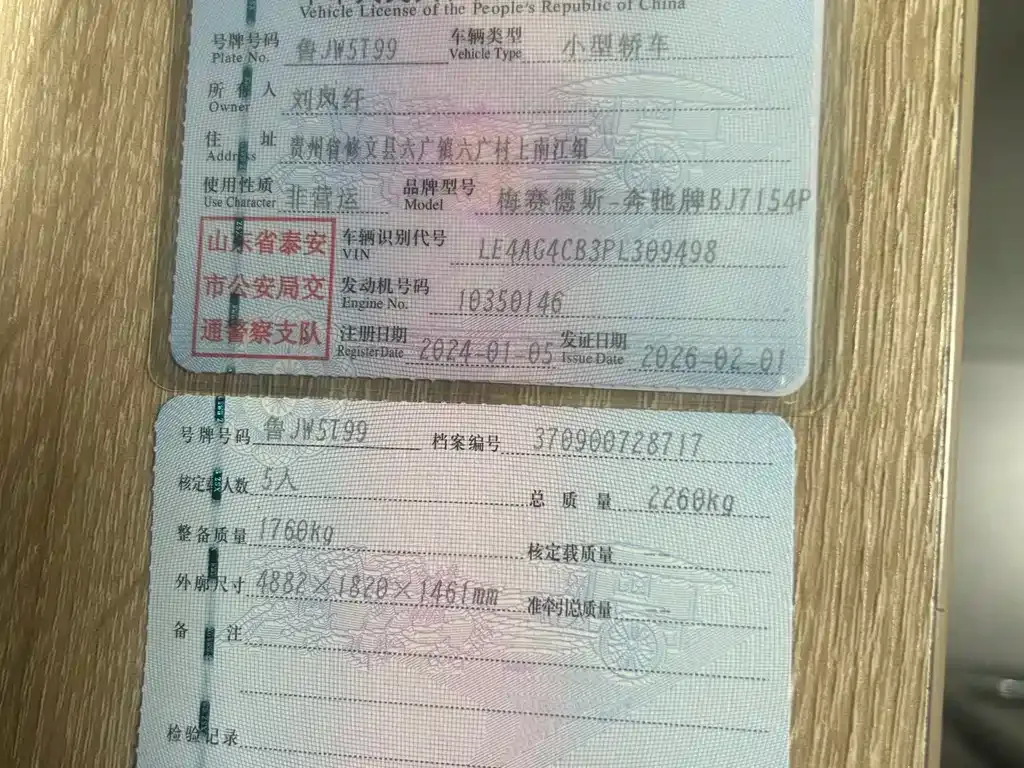 Vehicle License of the People's Republic of China
号牌号码 鲁JW5T99 车辆类型 小型轿车
Plate No. Vehicle Type
所有人 刘凤纤
Owner
住址 贵州省修文县六广镇六广村上南江组
Address
使用性质 非营运 品牌型号 梅赛德斯-奔驰牌BJ7154P
Use Character Model
山东省泰安
市公安局交
通警察支队
车辆识别代号 LE4AG4CB3PL309498
VIN
发动机号码 10350146
Engine No.
注册日期 2024-01-05 发证日期 2026-02-01
Register Date Issue Date
号牌号码 鲁JW5T99 档案编号 370900728717
核定载人数 5人 总质量 2260kg
整备质量 1760kg 核定载质量 --
外廓尺寸 4882×1820×1461mm 准牵引总质量 --
备注
检验记录